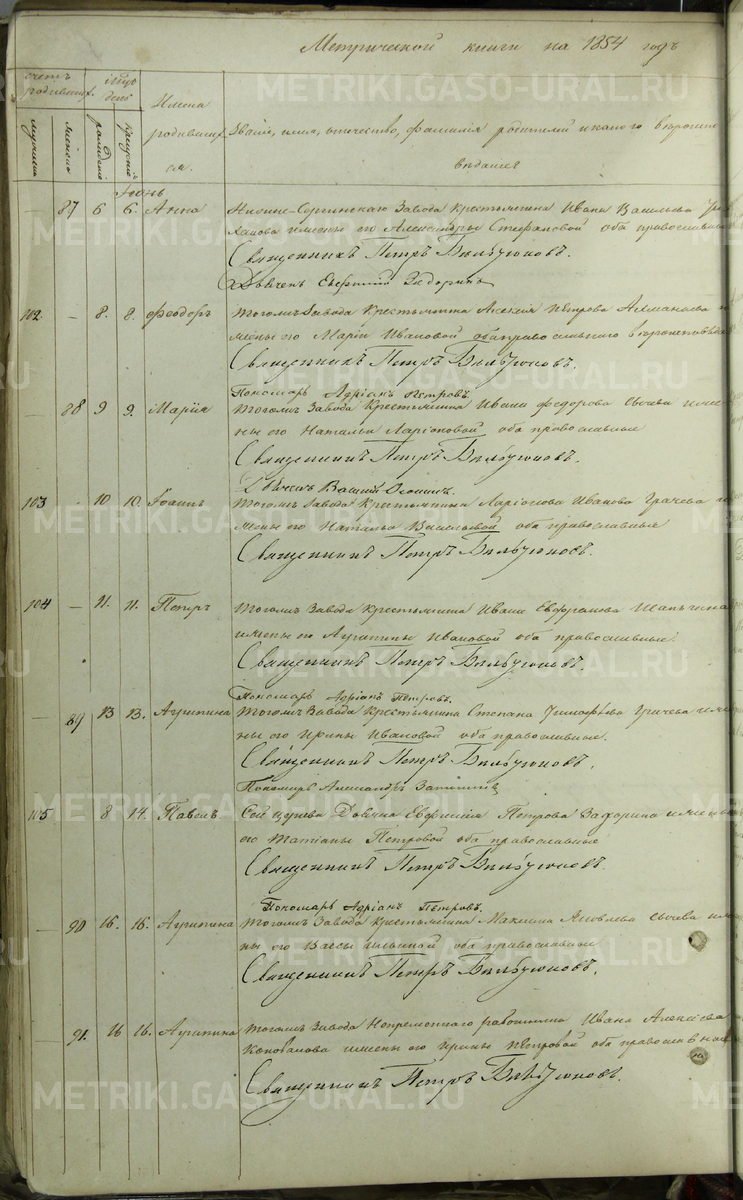 Метрической книги на 1854 годъ
METRIKI.GASO-URAL.RU
счетъ родивших.
день
Имена родивших ся.
Званіе, имя, отечество, фамилія родителей и какого вѣроисповѣданія
мужеска
женска
рожденія
крещенія
Іюнь
87 6 6. Анна
Нижне-Сергинскаго Завода крестьянина Ивана Васильева
и жены его Александры Стефановой оба православные
Священникъ Петръ
Дьячекъ Евфимій Задоринъ
102. — 8. 8. Феодоръ
Тогожъ Завода Крестьянина Алексѣя Петрова
жены его Маріи Ивановой оба православнаго вѣроисповѣданія
Священникъ Петръ
Пономарь Адріанъ Петровъ.
88 9 9. Марія
Тогожъ Завода Крестьянина Ивана Федорова Сычева и же
ны его Натальи Ларіоновой оба православные
Священникъ Петръ
103 10 10. Іоаннъ
Тогожъ Завода Крестьянина Ларіонова Иванова Грачева и
жены его Натальи Васильевой оба православные
Священникъ Петръ
104 — 11. 11. Петръ
Тогожъ Завода крестьянина Ивана
и жены его Агрипины Ивановой оба православные.
Священникъ Петръ
Пономарь Адріанъ Петровъ.
— 89 13 13. Агрипина
Тогожъ Завода Крестьянина Степана Тимофѣева Грачева и же
ны его Ирины Ивановой оба православные.
Священникъ Петръ
Пономарь Александръ
105 8 14. Павелъ
Сей церкви Дьячка Евфимія Петрова Задорина и жены
его Татіаны Петровой оба православные
Священникъ Петръ
Пономарь Адріанъ Петровъ.
— 90 16. 16. Агрипина
Тогожъ Завода Крестьянина Максима Яковлева Сычева и же
ны его Вассы Ильиной оба православные
Священникъ Петръ
91. 16 16. Агрипина
Тогожъ Завода Непремѣннаго работника Ивана Алексѣева
Коновалова и жены его Ирины Петровой оба православные
Священникъ Петръ
METRIKI.GASO-URAL.RU